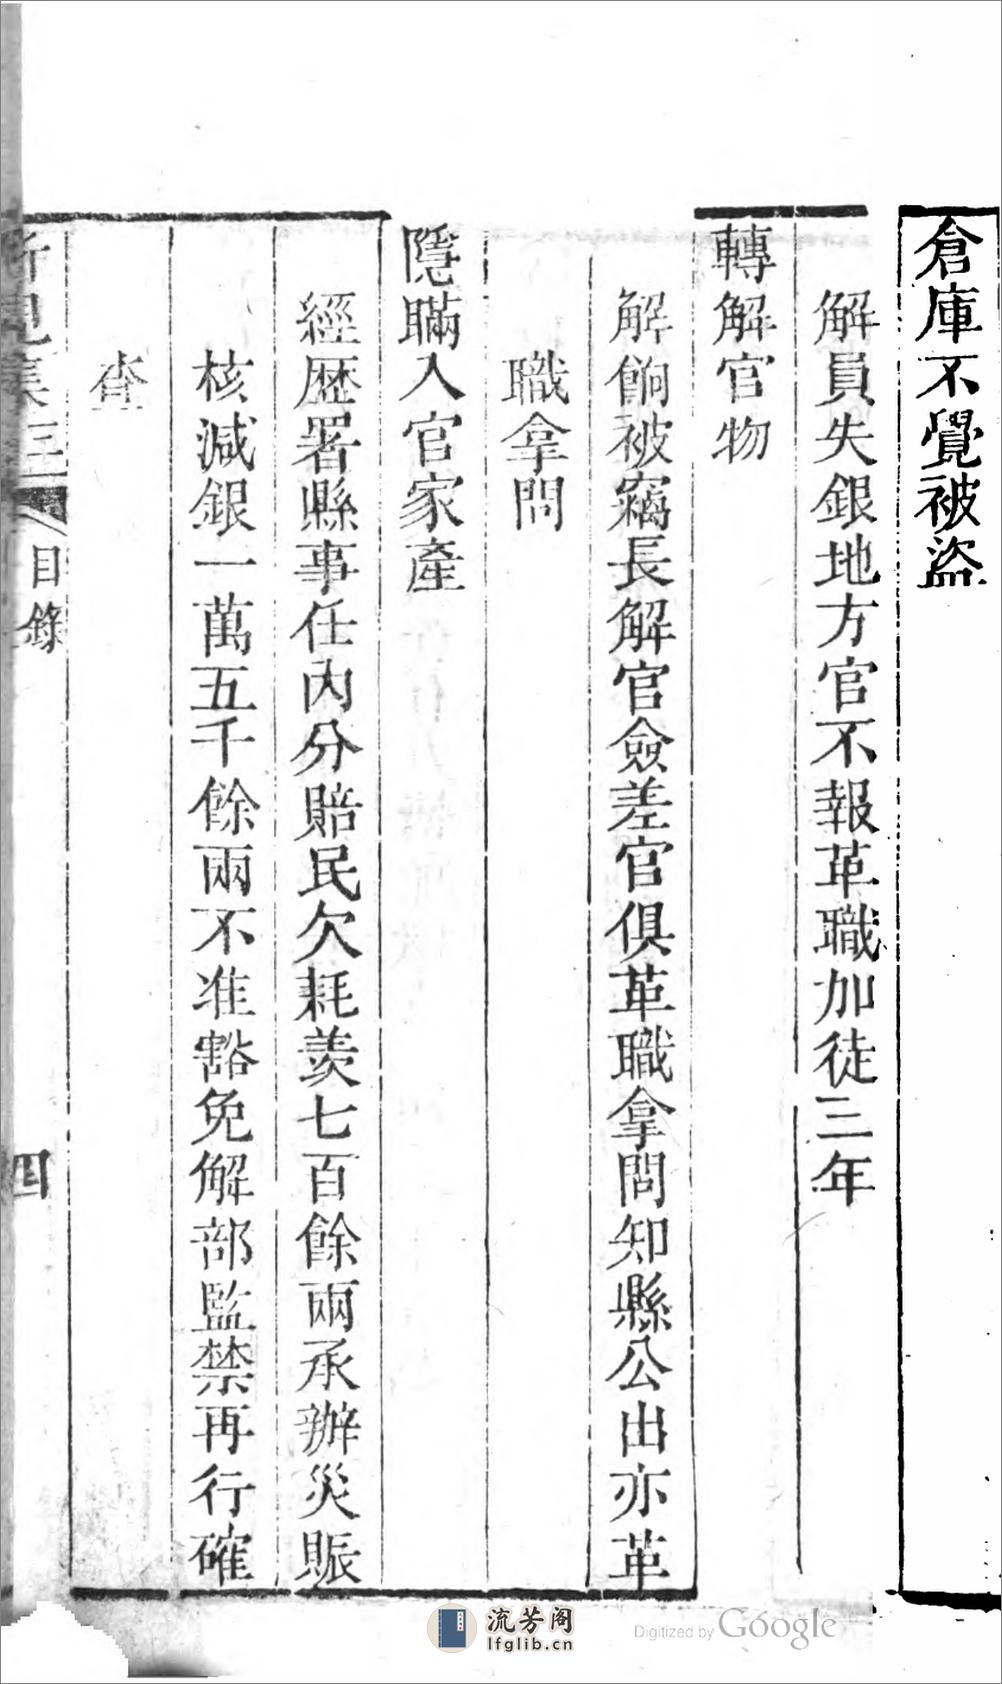 倉庫不覺被盜
解員失銀地方官不報革職加徒三年
轉解官物
解餉被竊長解官僉差官俱革職拿問知縣公出亦革
職拿問
隱瞞入官家產
經歷署縣事任內分賠民欠耗羨七百餘兩承辦災賑
核減銀一萬五千餘兩不准豁免解部監禁再行確
查
所見集三
目錄
四
流芳阁
lfglib.cn
Digitized by Google